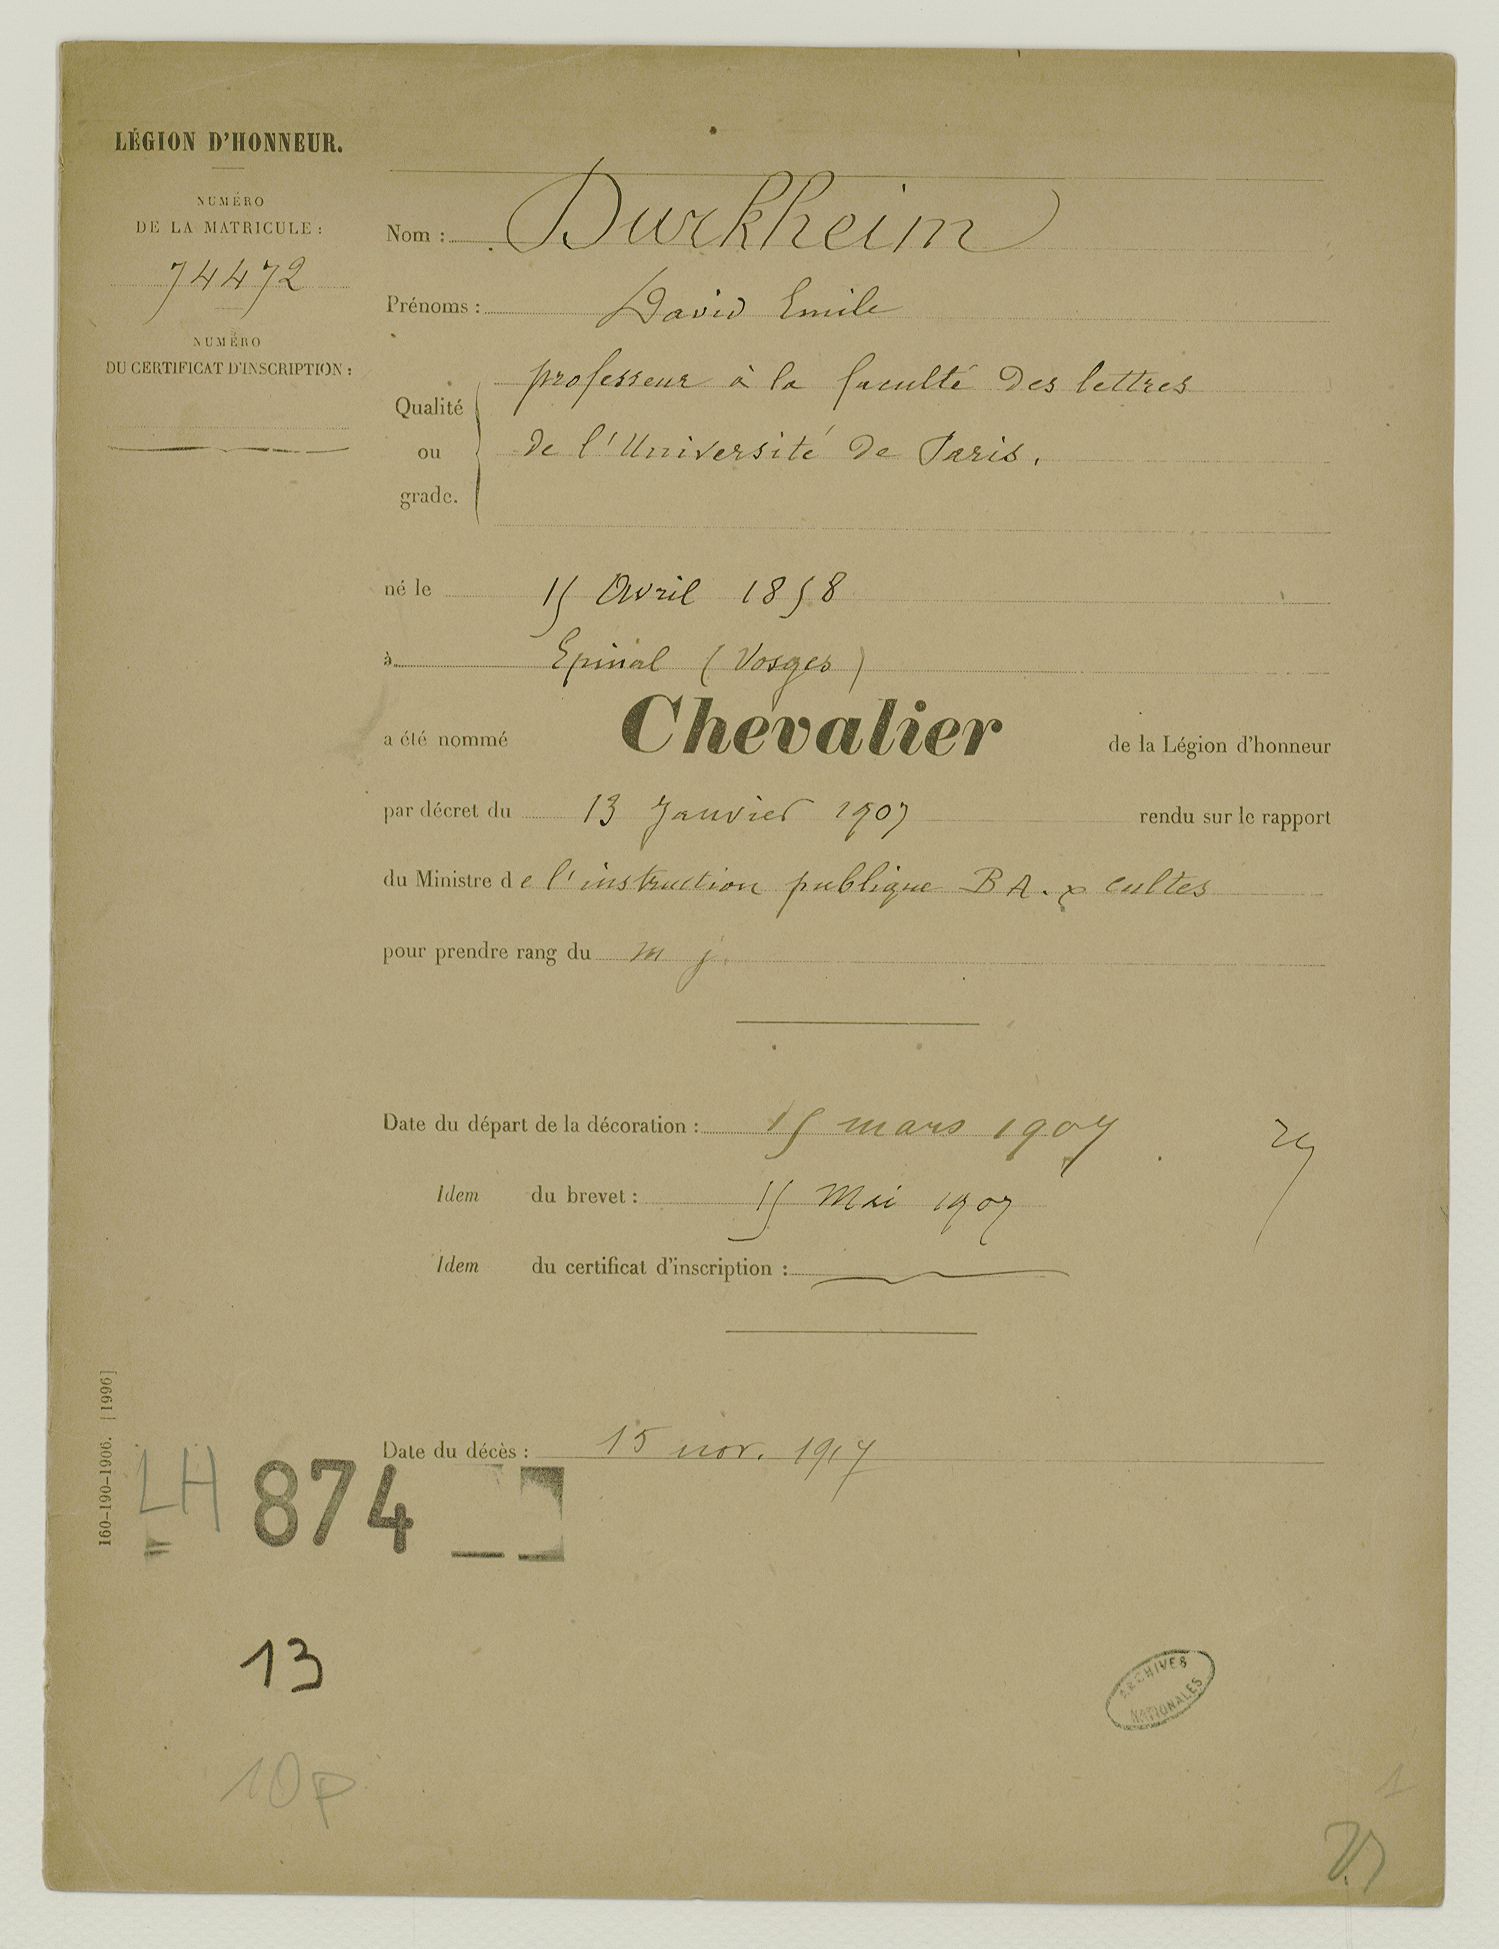 LÉGION D'HONNEUR.
NUMÉRO
DE LA MATRICULE :
74472
NUMÉRO
DU CERTIFICAT D'INSCRIPTION :
Nom : Durkheim
Prénoms : David Emile
Qualité
ou
grade.
professeur à la faculté des lettres
de l'Université de Paris.
né le 15 Avril 1858
à Epinal (Vosges)
a été nommé Chevalier de la Légion d'honneur
par décret du 13 Janvier 1907 rendu sur le rapport
du Ministre de l'instruction publique B A. & cultes
pour prendre rang du m j.
Date du départ de la décoration : 15 mars 1907
Idem du brevet : 15 Mai 1907
Idem du certificat d'inscription :
Date du décès : 15 nov. 1917
160-190-1906. [1996]
LH 874
13
10 p
ARCHIVES
NATIONALES
1